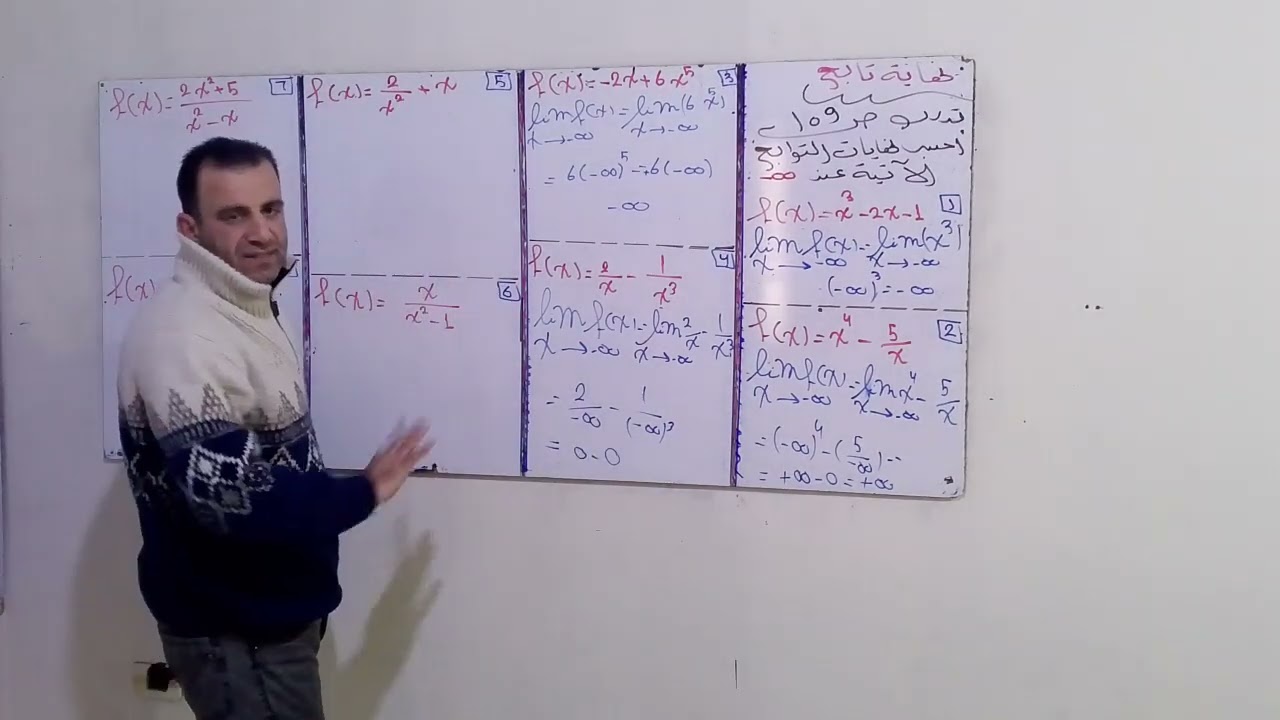 نهاية تابع
تدرب ص 109
أحسب نهايات التوابع
الآتية عند -∞
1
f(x)=x³-2x-1
lim f(x)=lim(x³)
x→-∞ x→-∞
(-∞)³=-∞
2
f(x)=x⁴-5/x
lim f(x)=lim x⁴-5/x
x→-∞ x→-∞
=(-∞)⁴-(5/-∞)
=+∞-0=+∞
3
f(x)=-2x+6x⁵
lim f(x)=lim(6x⁵)
x→-∞ x→-∞
=6(-∞)⁵=+6(-∞)
-∞
4
f(x)=2/x-1/x³
lim f(x)=lim 2/x-1/x³
x→-∞ x→-∞
=2/-∞-1/(-∞)³
=0-0
5
f(x)=2/x²+x
6
f(x)=x/x²-1
7
f(x)=2x²+5/x²-x
f(x)